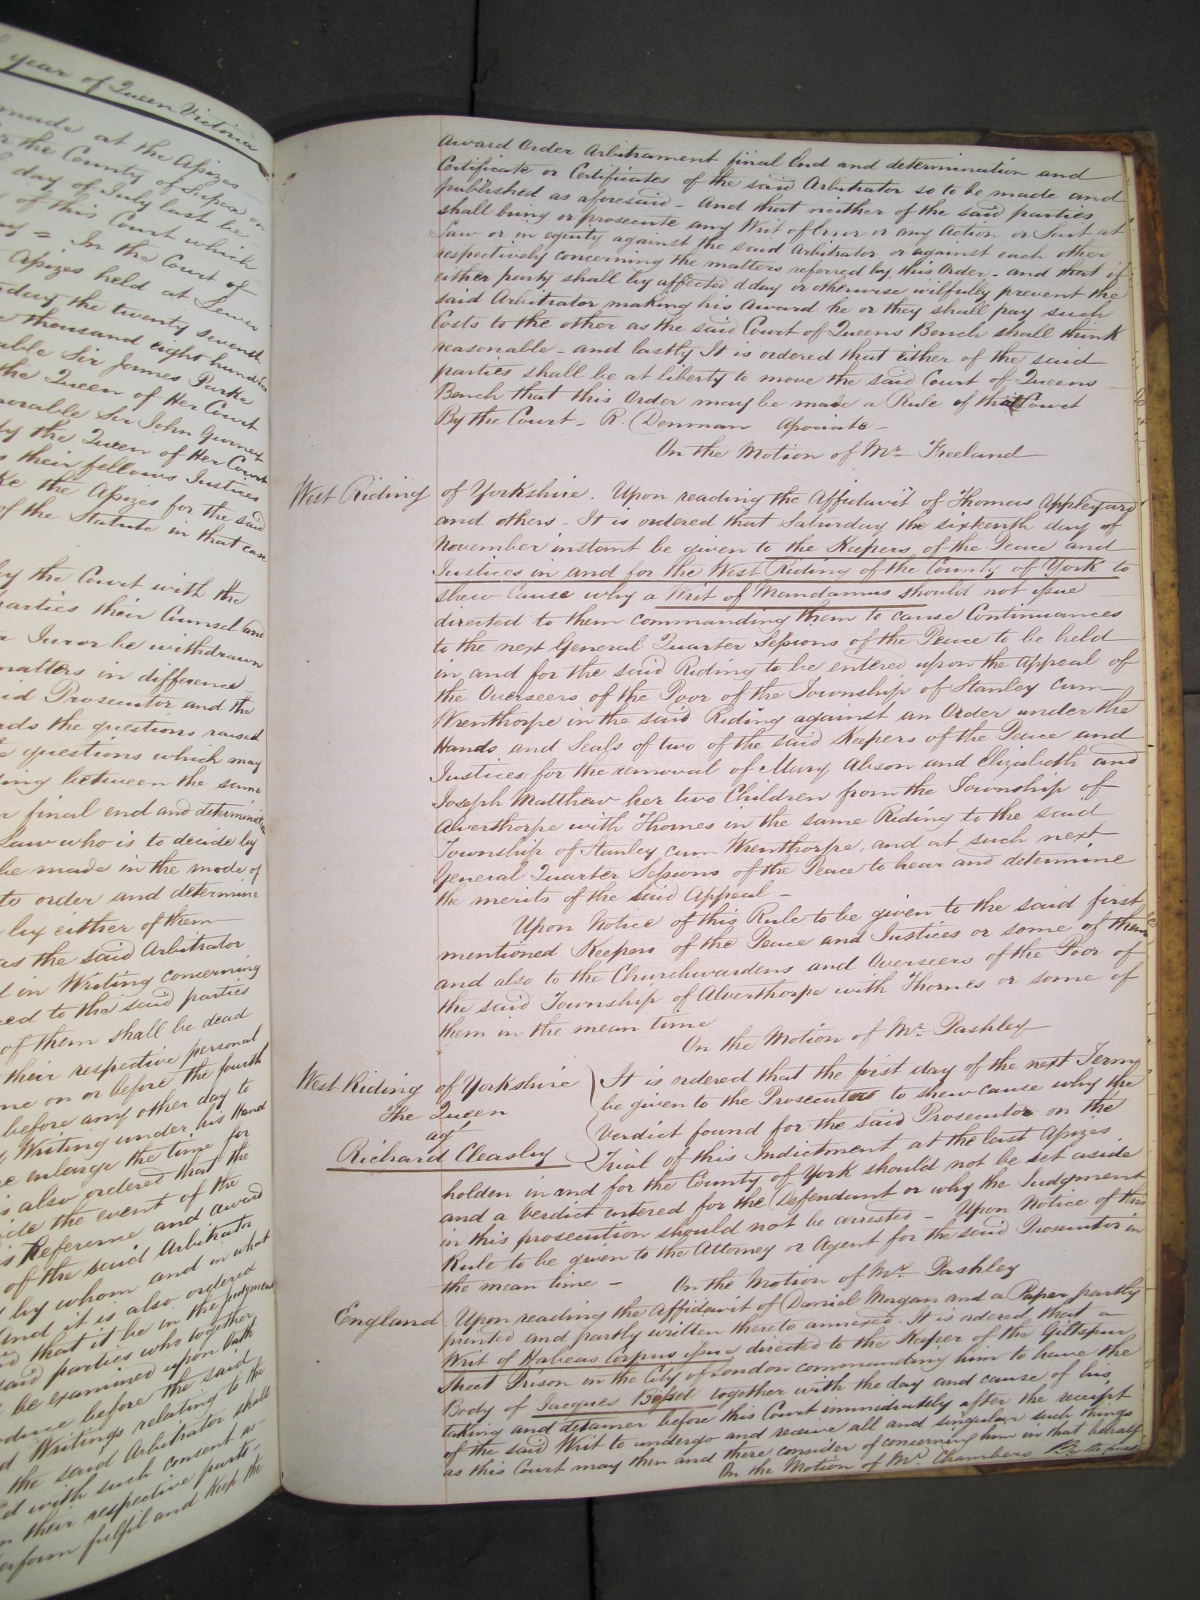 year of Queen Victoria
made at the Assizes
the County of
day of July last be
of this Court which
In the Court of
Assizes held at Lewes
the twenty seventh
thousand eight hundred
Sir James Parke
the Queen of Her Court
Sir John Gurney
by the Queen of Her Court
their fellows Justices
the Assizes for the said
of the Statute in that case
by the Court with the
parties their Counsel and
a Juror be withdrawn
matters in difference
said Prosecutor and the
the questions raised
questions which may
between the same
final end and determination
Law who is to decide by
be made in the mode of
to order and determine
by either of them
as the said Arbitrator
in Writing concerning
to the said parties
of them shall be dead
their respective personal
on or before the fourth
before any other day to
Writing under his Hand
enlarge the time for
is also ordered that the
the event of the
Reference and award
of the said Arbitrator
by whom and in what
and it is also ordered
that it be in the Judgment
said parties who together
be examined upon Oath
before the said
Writings relating to the
the said Arbitrator shall
with such consent a
their respective parts
perform fulfil and keep the
Award Order Arbitrament final End and determination and
Certificate or Certificates of the said Arbitrator so to be made and
published as aforesaid - And that neither of the said parties
shall bring or prosecute any Writ of Error or any Action or Suit at
Law or in equity against the said Arbitrator or against each other
respectively concerning the matters referred by this Order - and that if
either party shall by affected delay or otherwise wilfully prevent the
said Arbitrator making his award he or they shall pay such
Costs to the other as the said Court of Queens Bench shall think
reasonable - and lastly It is ordered that either of the said
parties shall be at liberty to move the said Court of Queens
Bench that this Order may be made a Rule of that Court
By the Court - R. Denman Associate -
On the Motion of Mr. Freeland
West Riding of Yorkshire. Upon reading the Affidavit of Thomas Appleyard
and others - It is ordered that Saturday the sixteenth day of
November instant be given to the Keepers of the Peace and
Justices in and for the West Riding of the County of York to
shew cause why a Writ of Mandamus should not issue
directed to them commanding them to cause Continuances
to the next General Quarter Sessions of the Peace to be held
in and for the said Riding to be entered upon the appeal of
the Overseers of the Poor of the Township of Stanley cum
Wrenthorpe in the said Riding against an Order under the
Hands and Seals of two of the said Keepers of the Peace and
Justices for the removal of Mary Alison and Elizabeth and
Joseph Matthew her two Children from the Township of
Alverthorpe with Thornes in the same Riding to the said
Township of Stanley cum Wrenthorpe, and at such next
General Quarter Sessions of the Peace to hear and determine
the merits of the said Appeal -
Upon Notice of this Rule to be given to the said first
mentioned Keepers of the Peace and Justices or some of them
and also to the Churchwardens and Overseers of the Poor of
the said Township of Alverthorpe with Thornes or some of
them in the mean time
On the Motion of Mr. Pashley
West Riding of Yorkshire It is ordered that the first day of the next Term
The Queen be given to the Prosecutors to shew cause why the
agt Verdict found for the said Prosecutor on the
Richard Cleasby Trial of this Indictment at the last Assizes
holden in and for the County of York should not be set aside
and a verdict entered for the Defendant or why the Judgment
in this prosecution should not be arrested - Upon Notice of this
Rule to be given to the Attorney or Agent for the said Prosecutor in
the mean time - On the Motion of Mr. Pashley
England Upon reading the Affidavit of Daniel Morgan and a Paper partly
printed and partly written thereto annexed It is ordered that a
Writ of Habeas Corpus issue directed to the Keeper of the Giltspur
Street Prison in the City of London commanding him to have the
Body of Jacques Besset together with the day and cause of his
taking and detainer before this Court immediately after the receipt
of the said Writ to undergo and receive all and singular such things
as this Court may then and there consider of concerning him in that behalf
On the Motion of Mr. Chambers By the Court